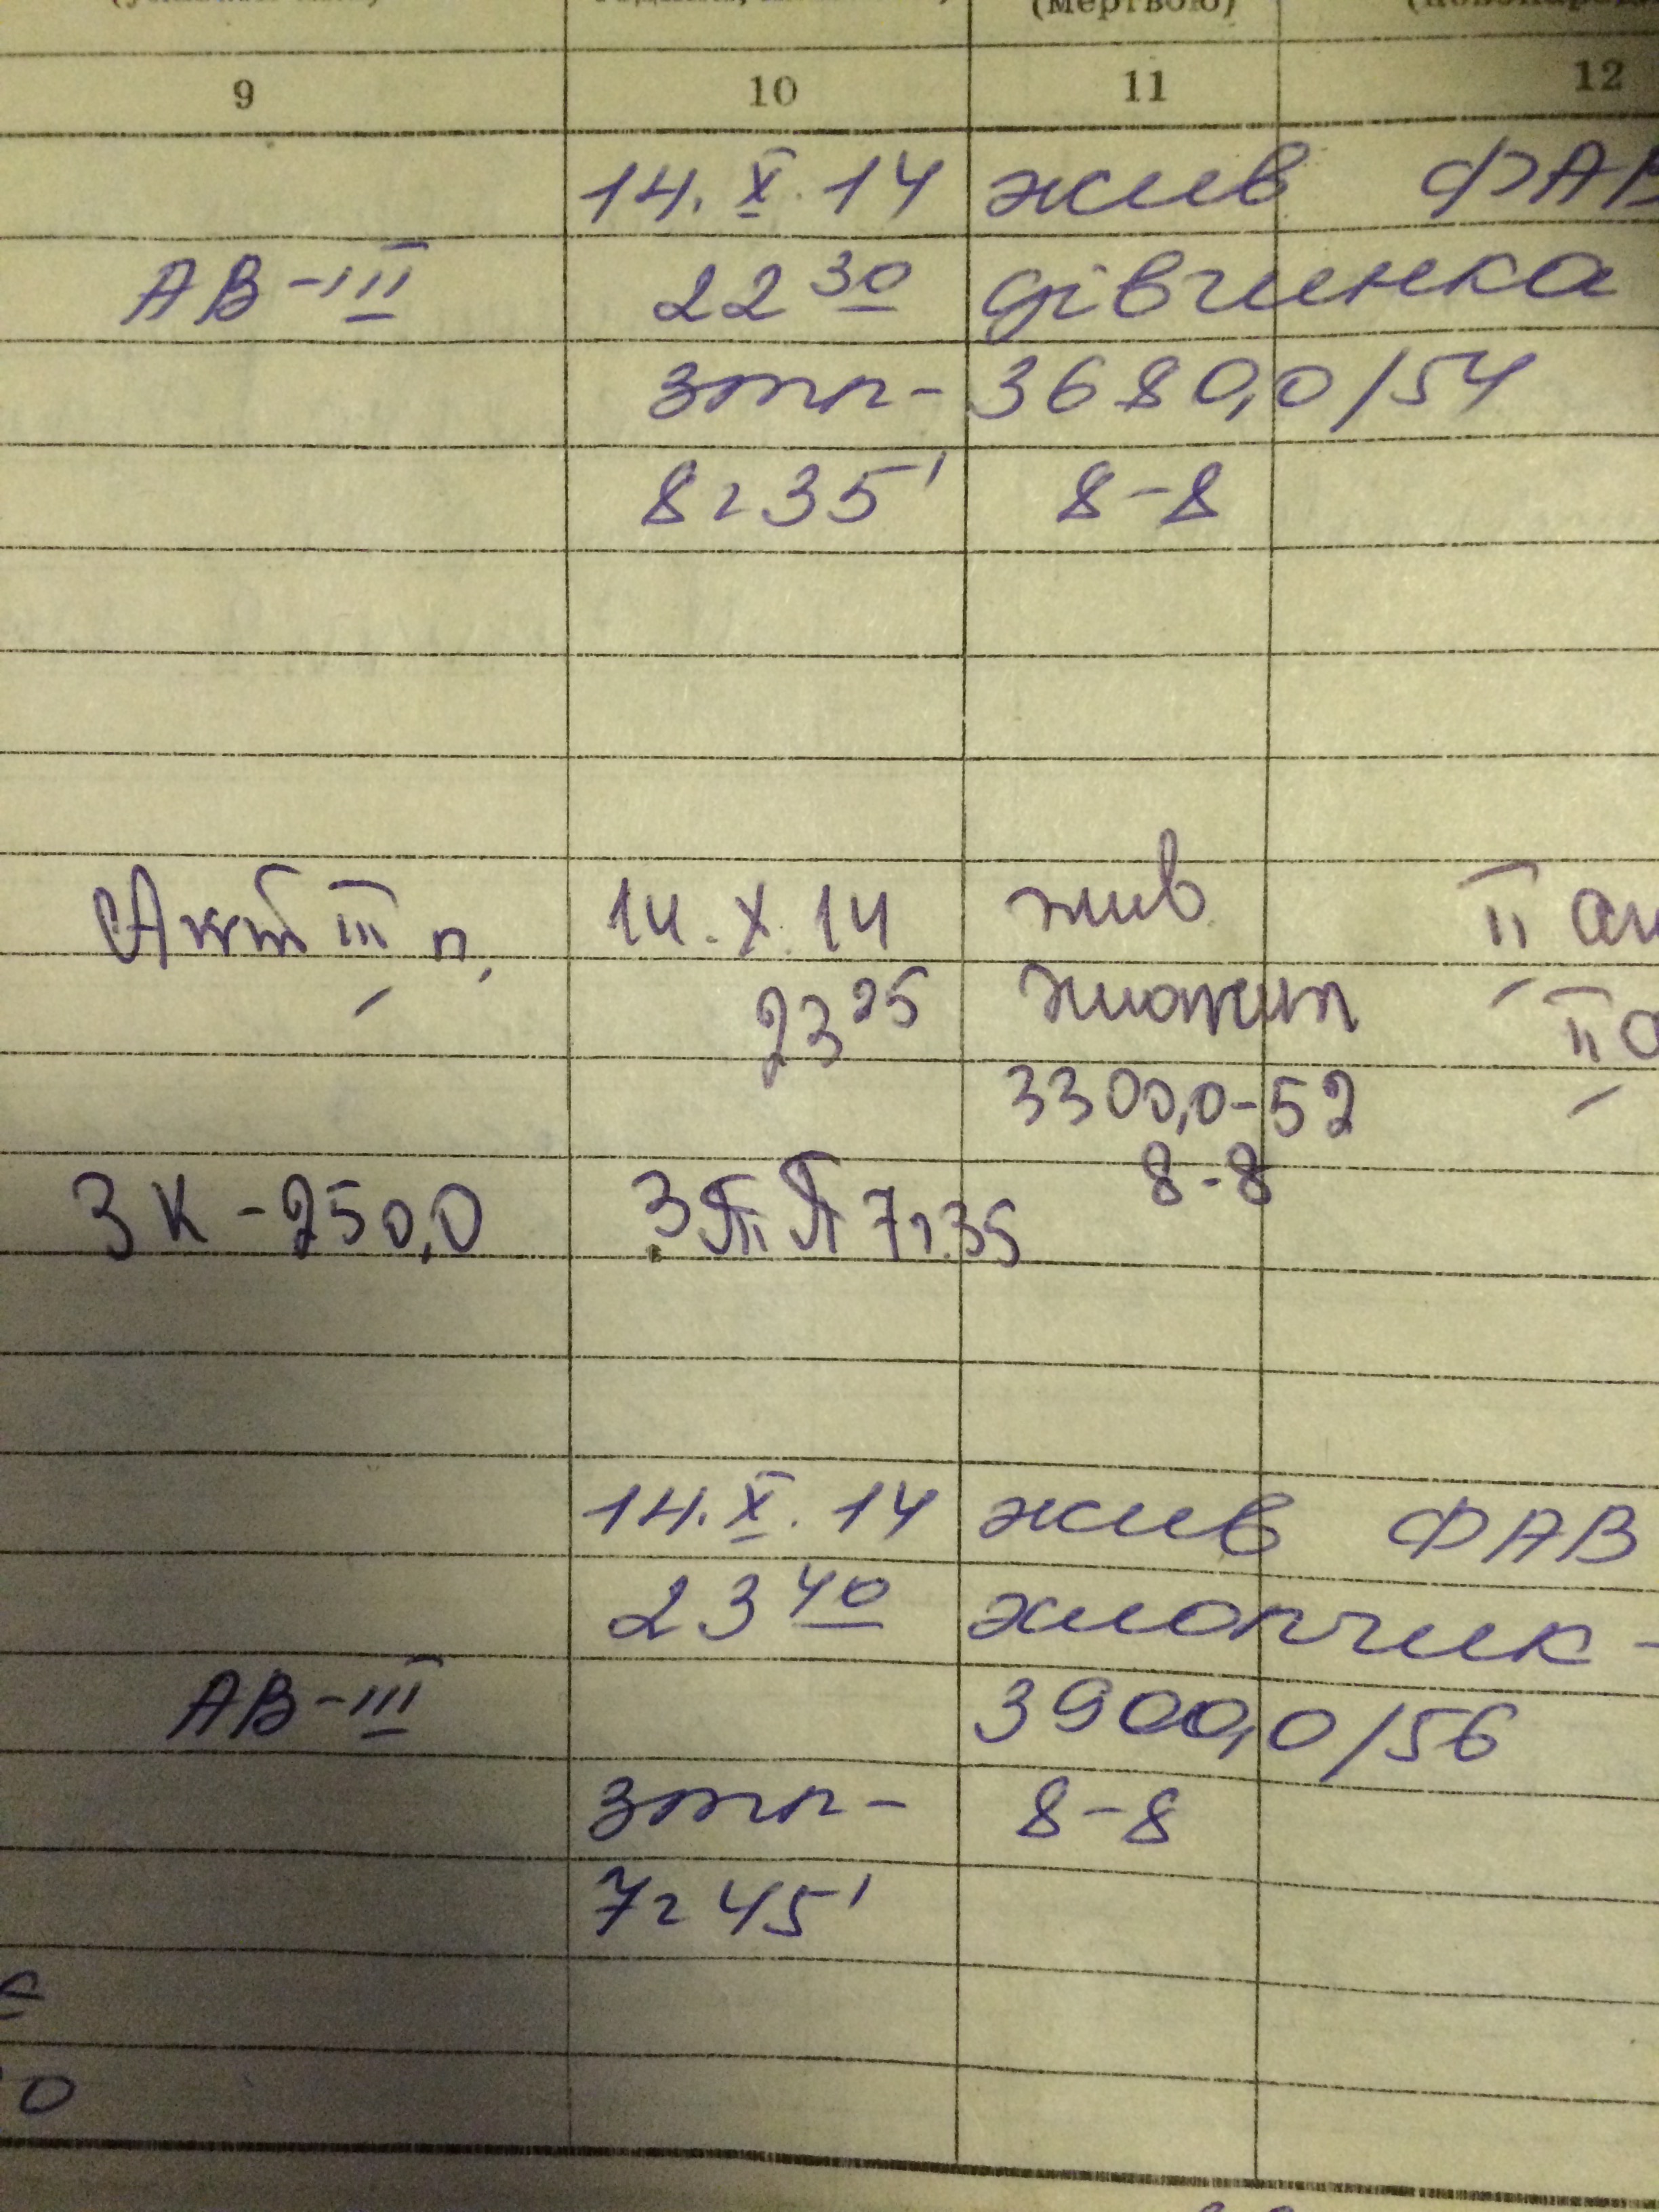 (мертвою)
9 10 11 12
14.X.14 жив ФАВ
АВ-III 22 30 дівчинка
зтп- 3680,0/54
8г35' 8-8
III п, 14.X.14 жив II
23 25 II
3300,0-52
8-8
ЗК-250,0 7г.35
14.X.14 жив ФАВ
23 40 хлопчик -
АВ-III 3900,0/56
зтп- 8-8
7г45'